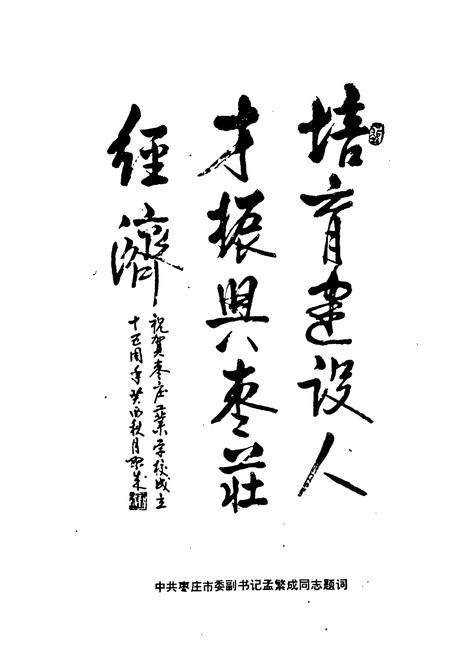 培育建设人
才振興枣莊
經濟
祝贺枣庄业学校成立
十五周年癸酉秋月繁成
中共枣庄市委副书记孟繁成同志题词